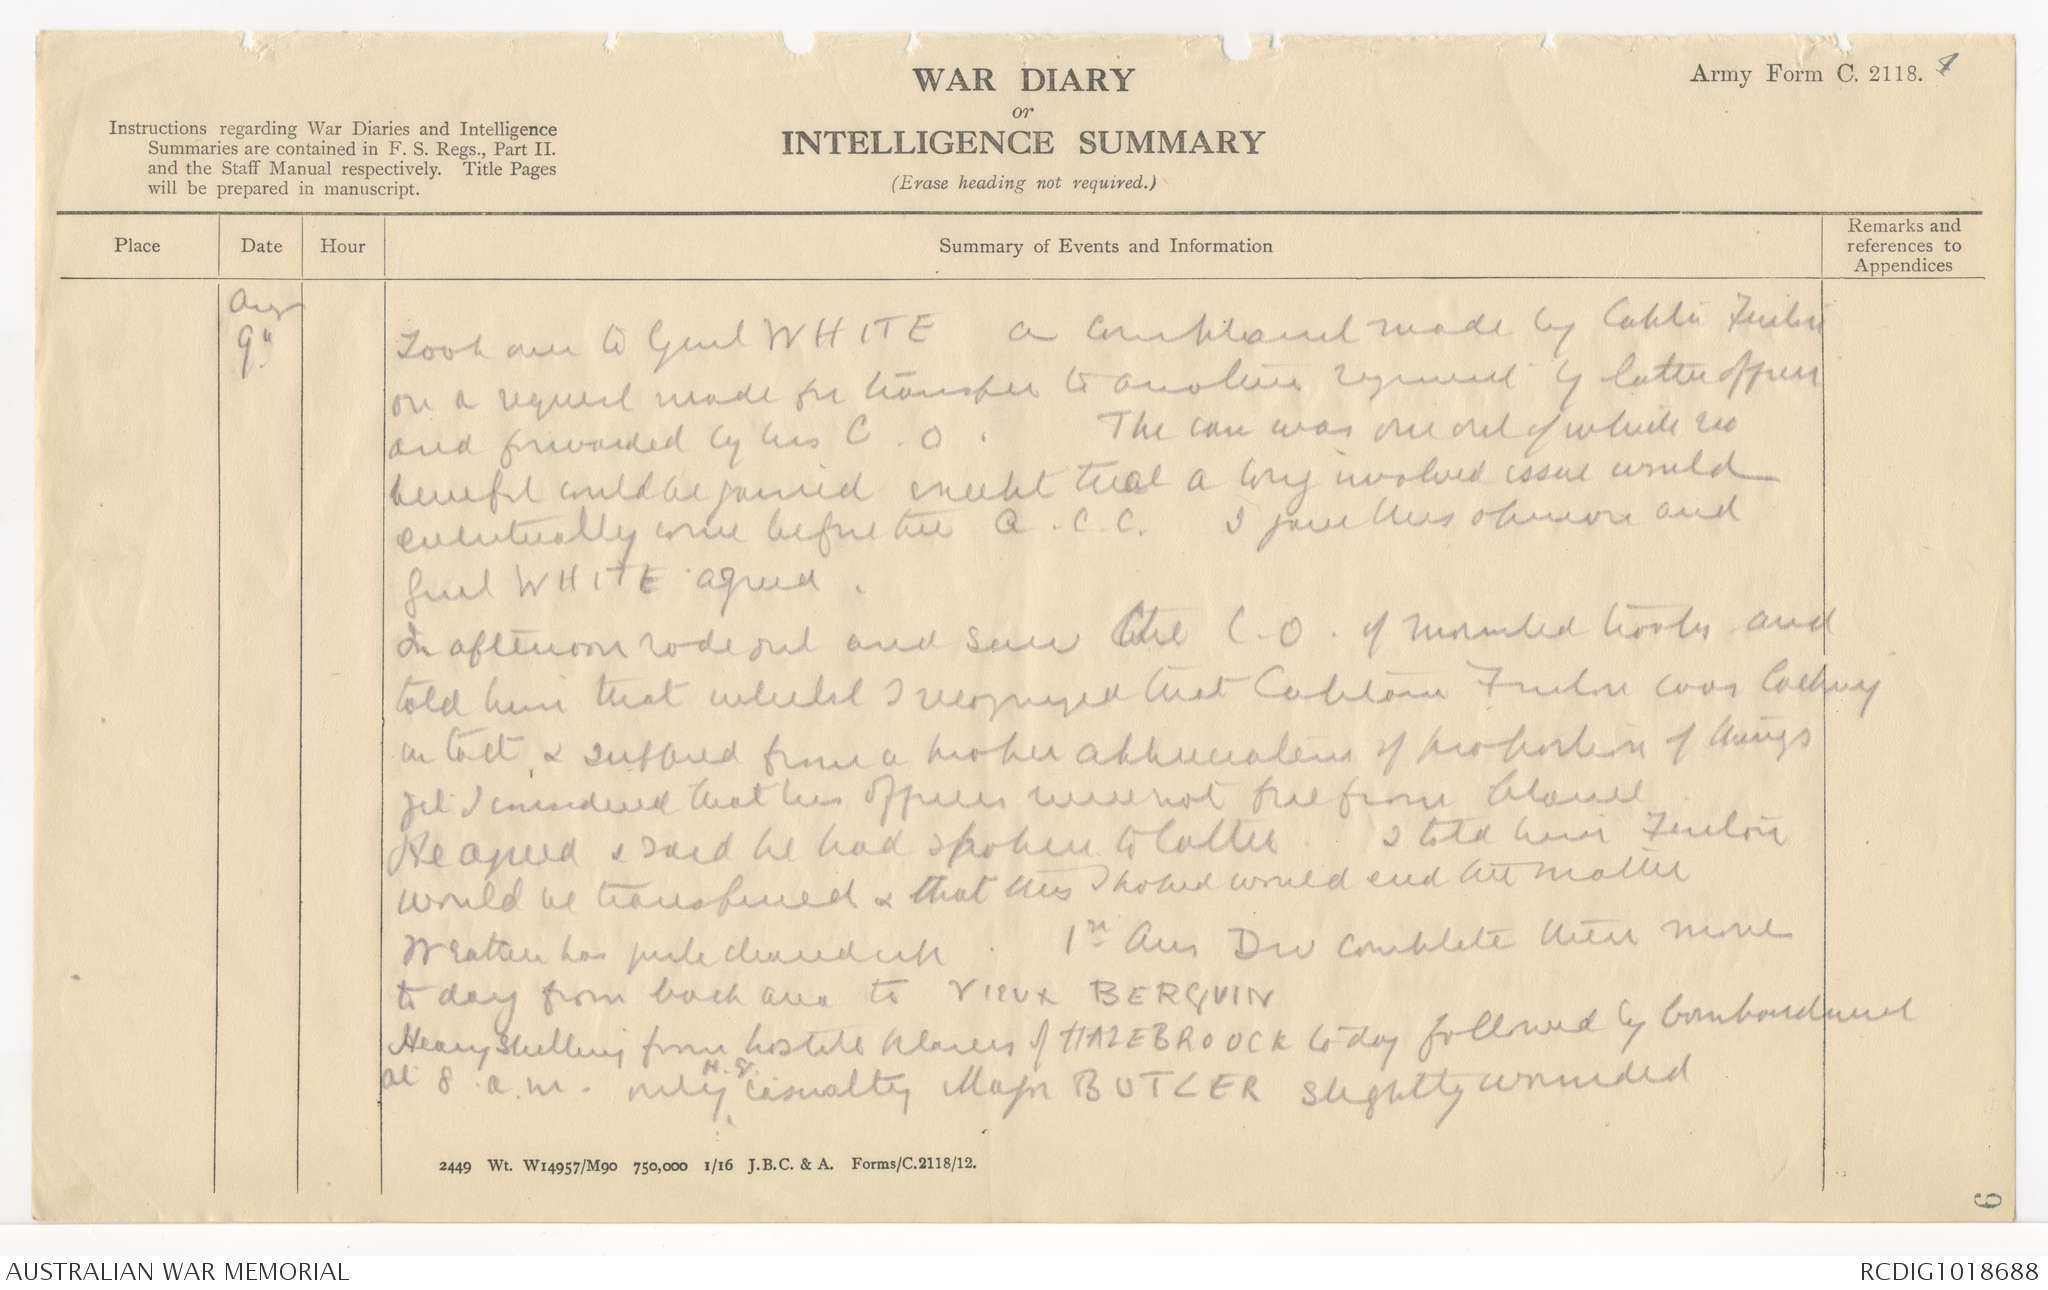 WAR DIARY
or
INTELLIGENCE SUMMARY
(Erase heading not required.)
Army Form C. 2118.
Instructions regarding War Diaries and Intelligence
Summaries are contained in F. S. Regs., Part II.
and the Staff Manual respectively. Title Pages
will be prepared in manuscript.
Place
Date
Hour
Summary of Events and Information
Remarks and
references to
Appendices
Aug
9th
Took over to Genl WHITE a complaint made by Captn Fenton
on a request made for transfer to another regiment by latter officer
and forwarded by his C.O. The case was one out of which no
benefit could be gained except that a long involved issue would
eventually come before the A.C.C. I gave this opinion and
Genl WHITE agreed.
In afternoon rode out and saw the C.O. of mounted troops and
told him that whilst I recognized that Captain Fenton was lacking
in tact & suffered from a proper appreciation of proportion of things
yet I considered that his officers were not free from blame.
He agreed & said he had spoken to latter. I told him Fenton
would be transferred & that this I hoped would end the matter
Weather has quite cleared up. 1st Aus Div complete their move
to day from back area to VIEUX BERQUIN
Heavy shelling from hostile planes of HAZEBROUCK today followed by bombardment
at 8 a.m. only H.Q. casualty Major BUTLER slightly wounded
2449 Wt. W14957/M90 750,000 1/16 J.B.C. & A. Forms/C.2118/12.
6
AUSTRALIAN WAR MEMORIAL
RCDIG1018688